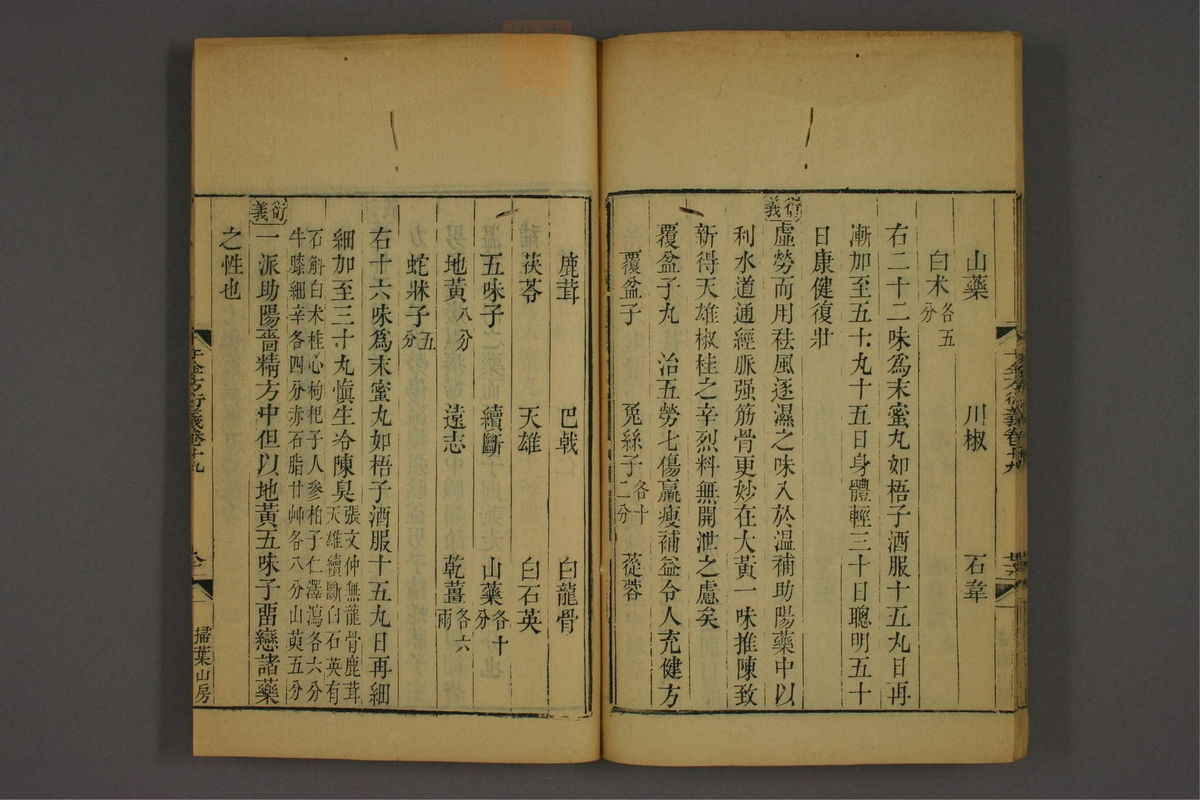 山藥　川椒　石韋
白朮各五分
右二十二味爲末蜜丸如梧子酒服十五丸日再
漸加至五十丸十五日身體輕三十日聰明五十
日康健復壯
衍義
虛勞而用祛風逐濕之味入於温補助陽藥中以
利水道通經脈强筋骨更妙在大黃一味推陳致
新得天雄椒桂之辛烈料無開泄之慮矣
覆盆子丸　治五勞七傷羸瘦補益令人充健方
覆盆子　兔絲子各十二分　蓯蓉
鹿茸　巴戟　白龍骨
茯苓　天雄　白石英
五味子　續斷　山藥各十分
地黃八分　遠志　乾薑各六兩
蛇牀子五分
右十六味爲末蜜丸如梧子酒服十五丸日再細
細加至三十丸慎生冷陳臭張文仲無龍骨鹿茸
天雄續斷白石英有
石斛白朮桂心枸杞子人參柏子仁澤瀉各六分
牛膝細辛各四分赤石脂甘艸各八分山萸五分
衍義
一派助陽嗇精方中但以地黃五味子畱戀諸藥
之性也
千金方衍義卷十九
掃葉山房